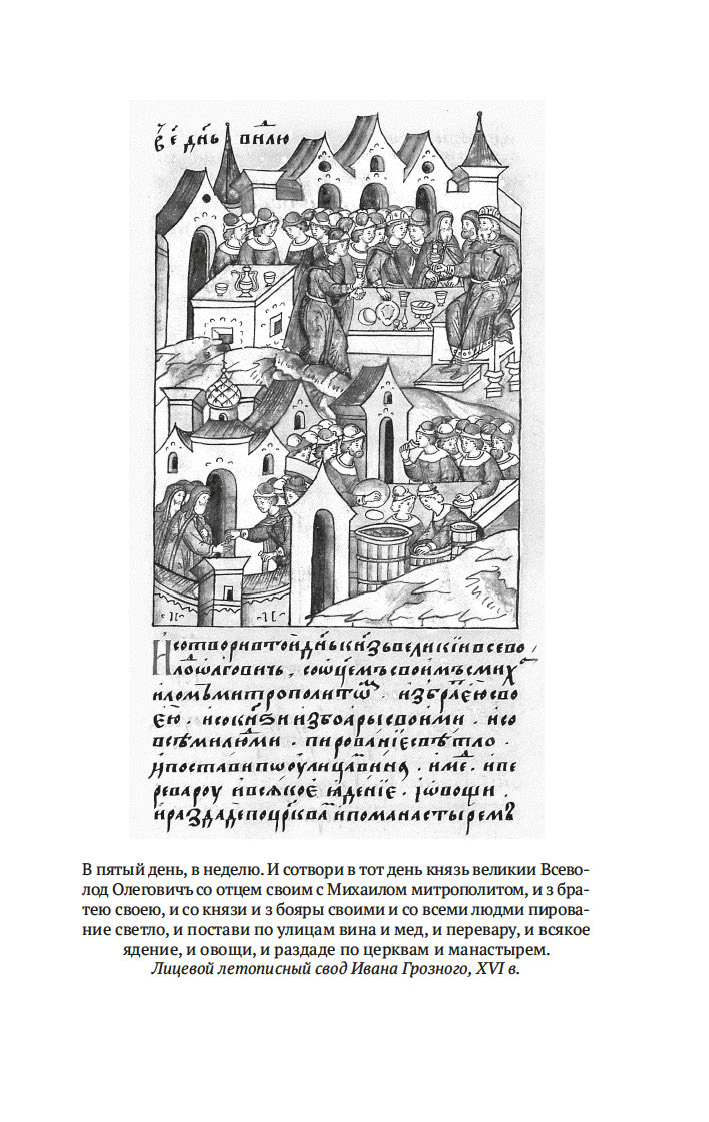 в҃ е҃ дн҃ь в нⷣлю
И сотвори в той дн҃ь кн҃зь великїи всево
лоⷣ ѡлговичь, со ѿцемъ своимъ с миⷯ
иломъ митрополитоⷨ. и з браⷮею сво
ею. и со кн҃ѕи и з боары своими. и со
всѣми люⷣми. пированїе свѣтло.
и постави по оулицаⷨ вина, и меⷣ. и пе
ревароу и всѧкое ꙗденїе. и ѡвощи.
и раздаде по цр҃ква и по манастыремъ
В пятый день, в неделю. И сотвори в тот день князь великии Всево-
лод Олеговичъ со отцем своим с Михаилом митрополитом, и з бра-
тею своею, и со князи и з бояры своими и со всеми людми пирова-
ние светло, и постави по улицам вина и мед, и перевару, и всякое
ядение, и овощи, и раздаде по церквам и манастырем.
Лицевой летописный свод Ивана Грозного, XVI в.